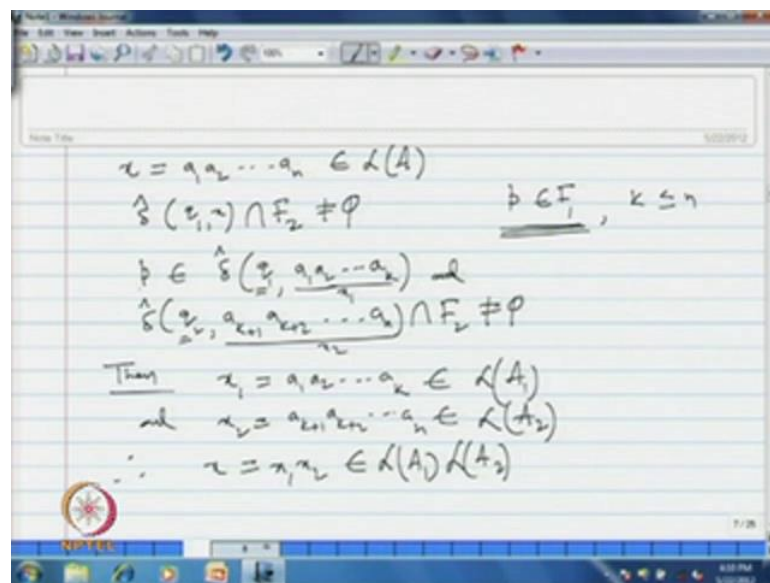 Note1 - Windows Journal
File Edit View Insert Actions Tools Help
Note Title
5/22/2012
x = a₁ a₂ ⋯ aₙ ∈ L(A)
δ̂(q₁, x) ∩ F₂ ≠ φ p ∈ F₁, k ≤ n
p ∈ δ̂(q₁, a₁ a₂ ⋯ aₖ) and
x₁
δ̂(q₂, aₖ₊₁ aₖ₊₂ ⋯ aₙ) ∩ F₂ ≠ φ
x₂
Then x₁ = a₁ a₂ ⋯ aₖ ∈ L(A₁)
and x₂ = aₖ₊₁ aₖ₊₂ ⋯ aₙ ∈ L(A₂)
∴ x = x₁ x₂ ∈ L(A₁) L(A₂)
NPTEL
7/25